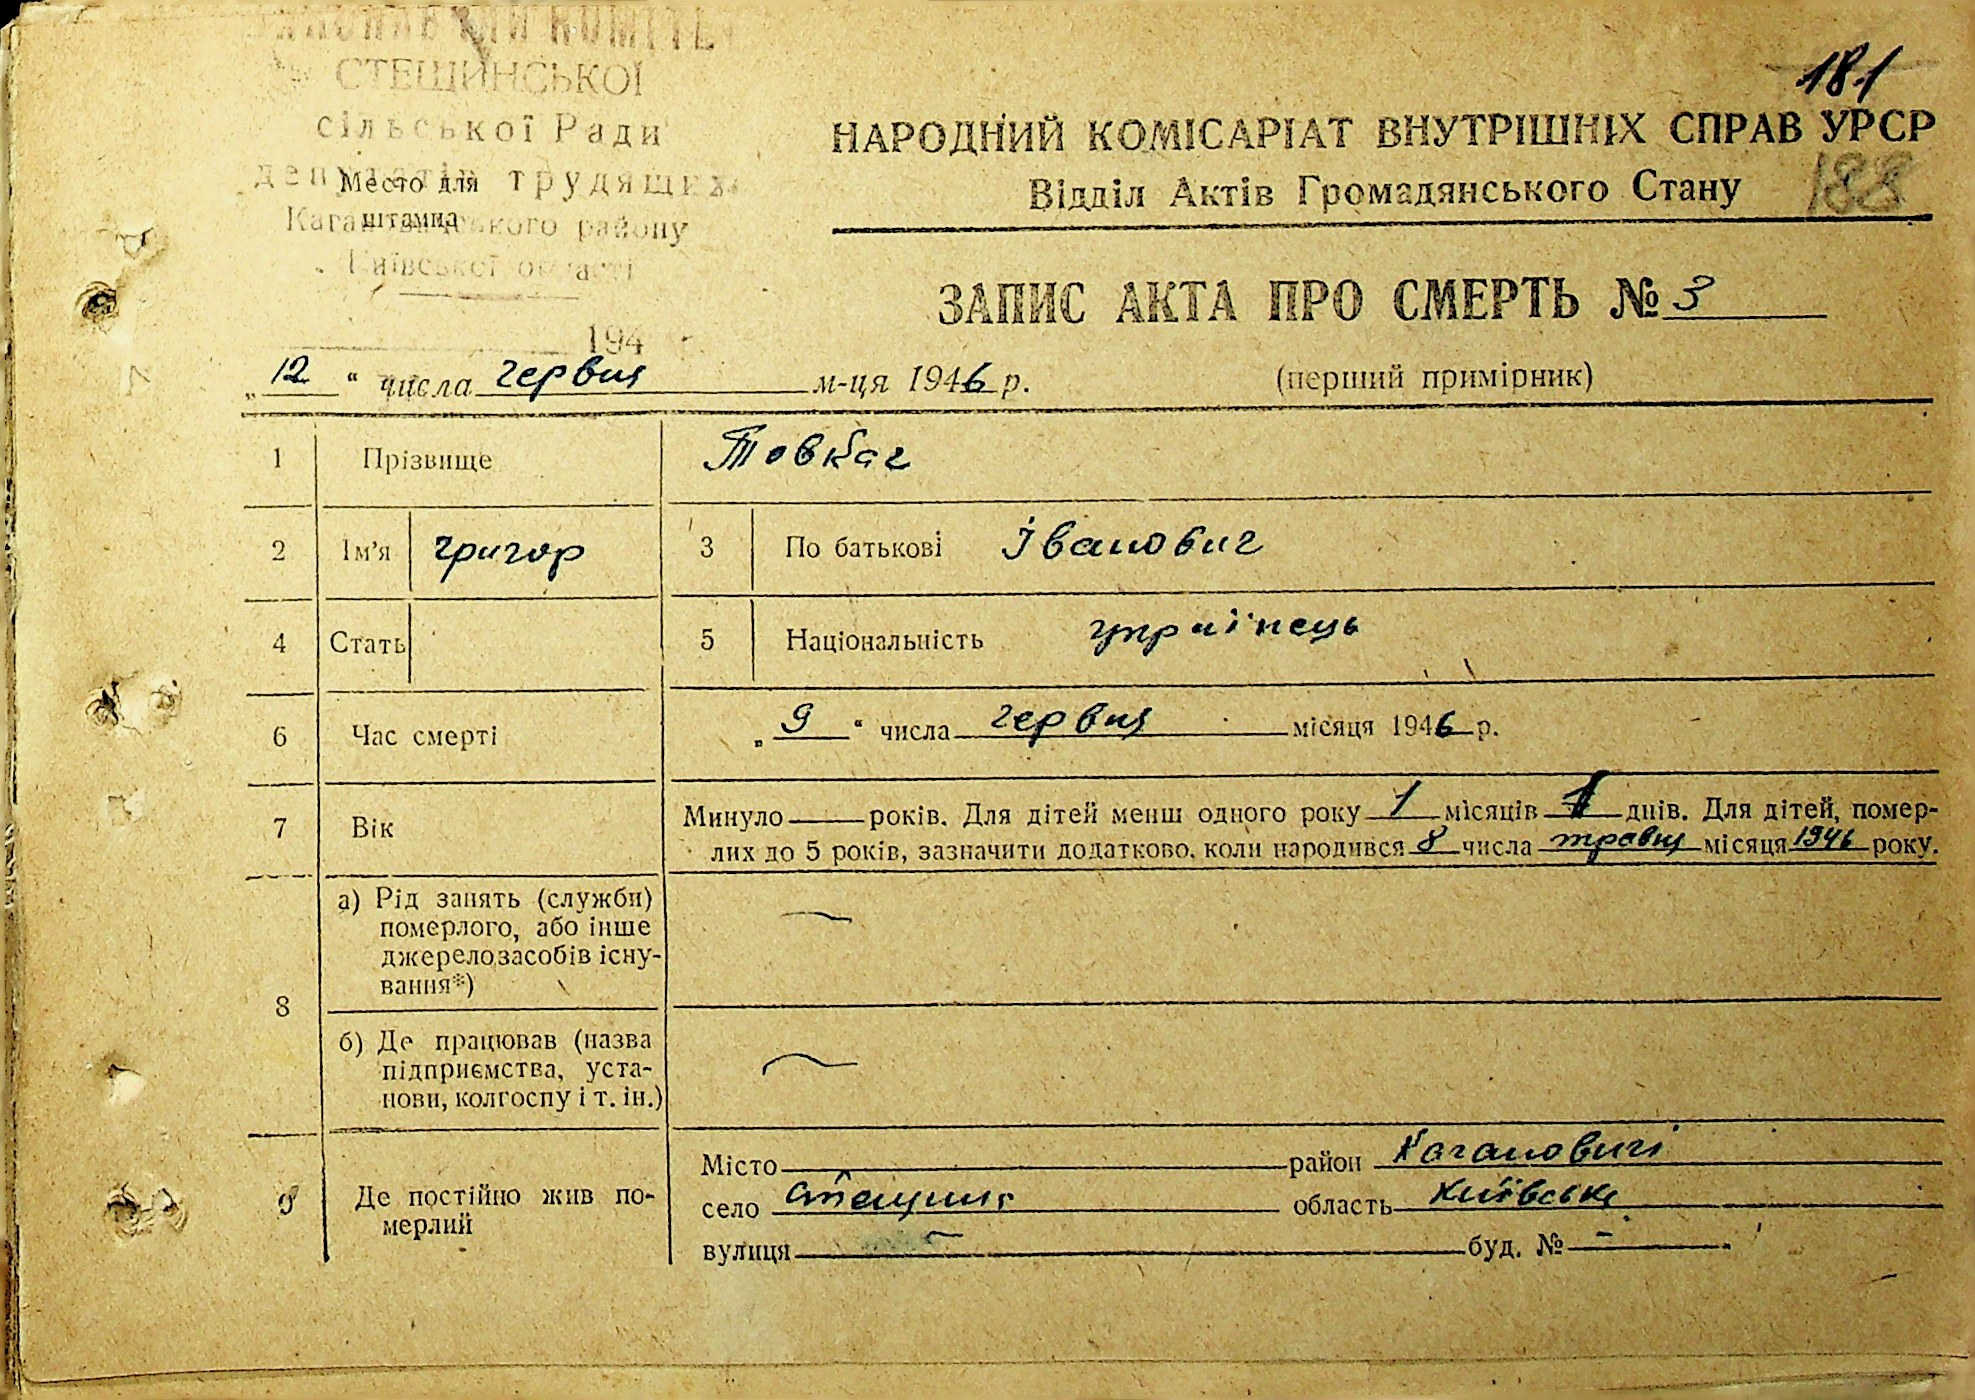 ВИКОНАВЧИЙ КОМІТЕТ
СТЕЩИНСЬКОЇ
сільської Ради
депутатів трудящих
Кагановичського району
Київської області
Место для
штампа
194
181
188
НАРОДНИЙ КОМІСАРІАТ ВНУТРІШНІХ СПРАВ УРСР
Відділ Актів Громадянського Стану
ЗАПИС АКТА ПРО СМЕРТЬ № 3
„12“ числа червня м-ця 1946 р.
(перший примірник)
1 Прізвище Товкач
2 Ім’я григор 3 По батькові Іванович
4 Стать 5 Національність українець
6 Час смерті „9“ числа червня місяця 1946 р.
7 Вік Минуло — років. Для дітей менш одного року 1 місяців 1 днів. Для дітей, помер-
лих до 5 років, зазначити додатково, коли народився 8 числа травня місяця 1946 року.
8 а) Рід занять (служби)
померлого, або інше
джерело засобів існу-
вання*)
—
б) Де працював (назва
підприємства, уста-
нови, колгоспу і т. ін.)
—
9 Де постійно жив по-
мерлий
Місто район Кагановичі
село Стещина область Київська
вулиця — буд. № —